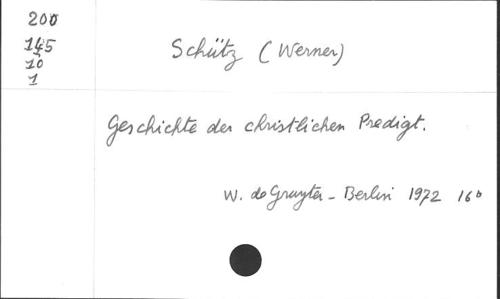 200
145
10
1
Schütz (Werner)
Geschichte der christlichen Predigt.
W. de Gruyter - Berlin 1972 16°